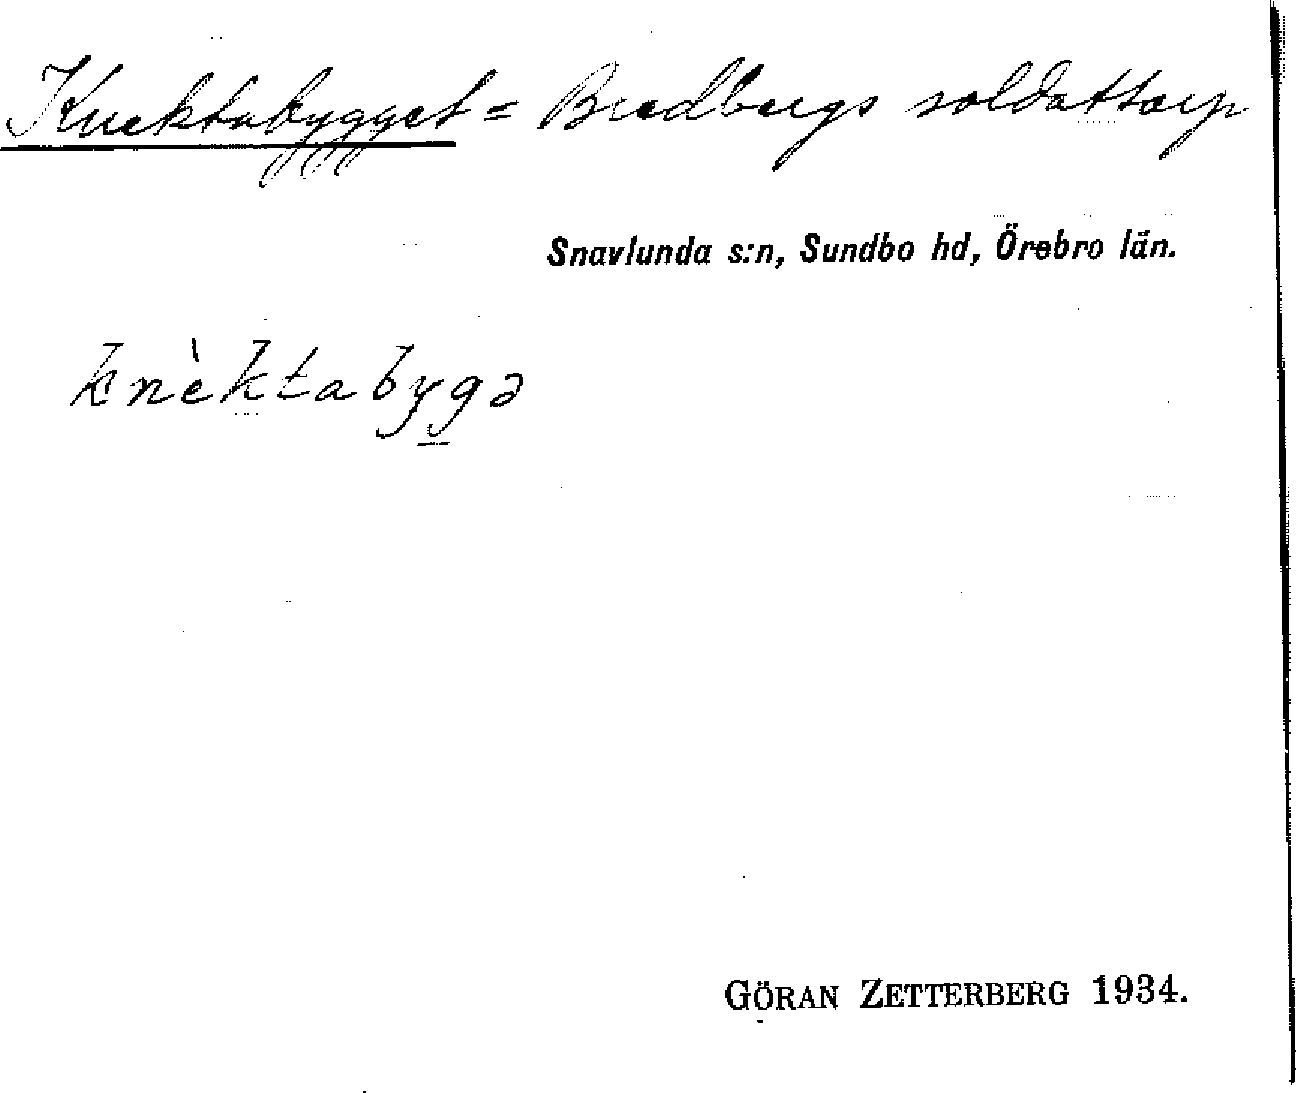 Knektabygget = Bredbergs soldattorp
Snavlunda s:n, Sundbo hd, Örebro län.
knèktabygə
GÖRAN ZETTERBERG 1934.